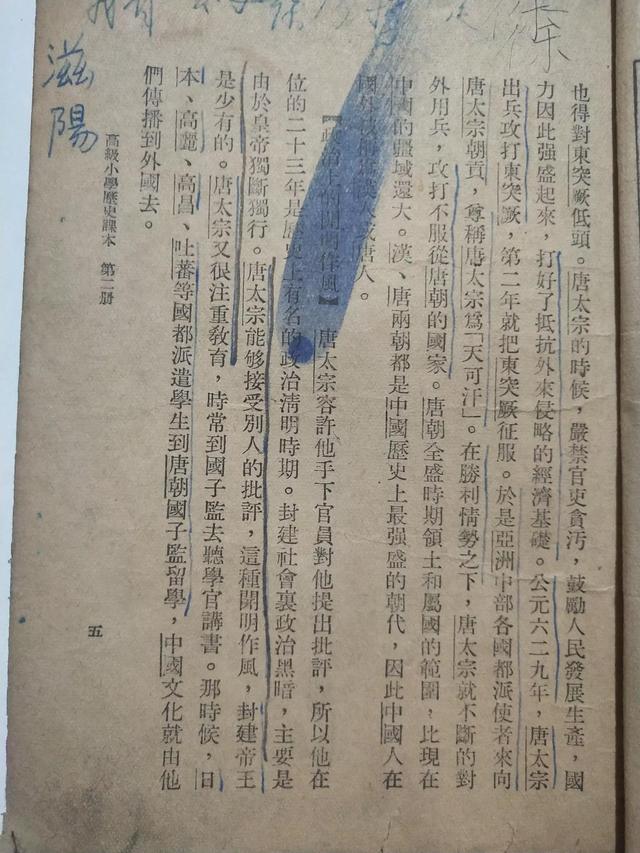 也得對東突厥低頭。唐太宗的時候，嚴禁官吏貪汚，鼓勵人民發展生產，國
力因此强盛起來，打好了抵抗外來侵略的經濟基礎。公元六二九年，唐太宗
出兵攻打東突厥，第二年就把東突厥征服。於是亞洲中部各國都派使者來向
唐太宗朝貢，尊稱唐太宗爲「天可汗」。在勝利情勢之下，唐太宗就不斷的對
外用兵，攻打不服從唐朝的國家。唐朝全盛時期領土和屬國的範圍，比現在
中國的疆域還大。漢、唐兩朝都是中國歷史上最强盛的朝代，因此中國人在
國外被稱爲漢人或唐人。
【政治上的開明作風】　唐太宗容許他手下官員對他提出批評，所以他在
位的二十三年是歷史上有名的政治清明時期。封建社會裏政治黑暗，主要是
由於皇帝獨斷獨行。唐太宗能够接受別人的批評，這種開明作風，封建帝王
是少有的。唐太宗又很注重敎育，時常到國子監去聽學官講書。那時候，日
本、高麗、高昌、吐蕃等國都派遣學生到唐朝國子監留學，中國文化就由他
們傳播到外國去。
高級小學歷史課本　第二册
五
滋陽